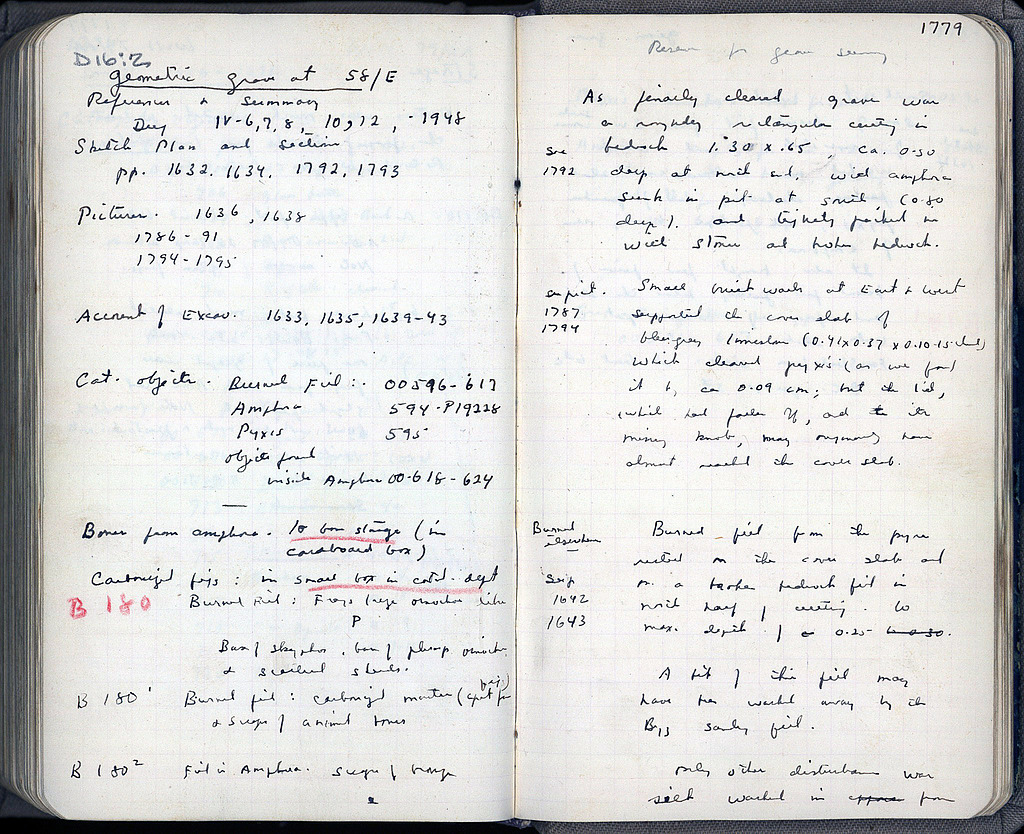 D16:2
Geometric grave at 58/E
References & Summary
Deep IV-6,7,8, 10,12, -1948
Sketch Plan and Section
pp. 1632, 1634, 1792, 1793
Pictures. 1636, 1638
1786-91
1794-1795
Account of Excav. 1633, 1635, 1639-43
Cat. objects. Burned Fill: 00596-617
Amphora 594-P19228
Pyxis 595
objects found
inside Amphora 00-618-624
Bones from amphora. To bone storage (in
cardboard box)
Carbonized figs: in small box in catd. dept
B 180 Burned Fill: Frags large
P
Bases / skyphos, base / plump oinochoe
& scattered sherds.
B 180' Burned fill: carbonized matter (apart from figs)
& scraps of animal bones
B 180² Fill in Amphora. scraps / bronze
1779
Reserve for grave summary
As finally cleared grave was
a roughly rectangular cutting in
see bedrock 1.30 x .65, ca. 0.50
1792 deep at north end, with amphora
sunk in pit at south (0.80
deep), and tightly packed in
with stones and broken bedrock.
see pict. Small brick walls at East & West
1787 supported the cover slab of
1794 bluegrey limestone (0.41x0.37 x 0.10-15 thick)
which cleared pyxis (as we found
it by ca 0.09 cm; but the lid,
which had fallen off, and its
missing knob, may originally have
almost reached the cover slab.
Burned Burned fill from the pyre
elsewhere rested on the cover slab and
See p on a broken bedrock fill in
1642 north half / cutting. to
1643 max. depth / ca 0.25 to 0.30.
A bit of this fill may
have been washed away by the
Byz sandy fill.
Only other disturbance was
silt washed in from